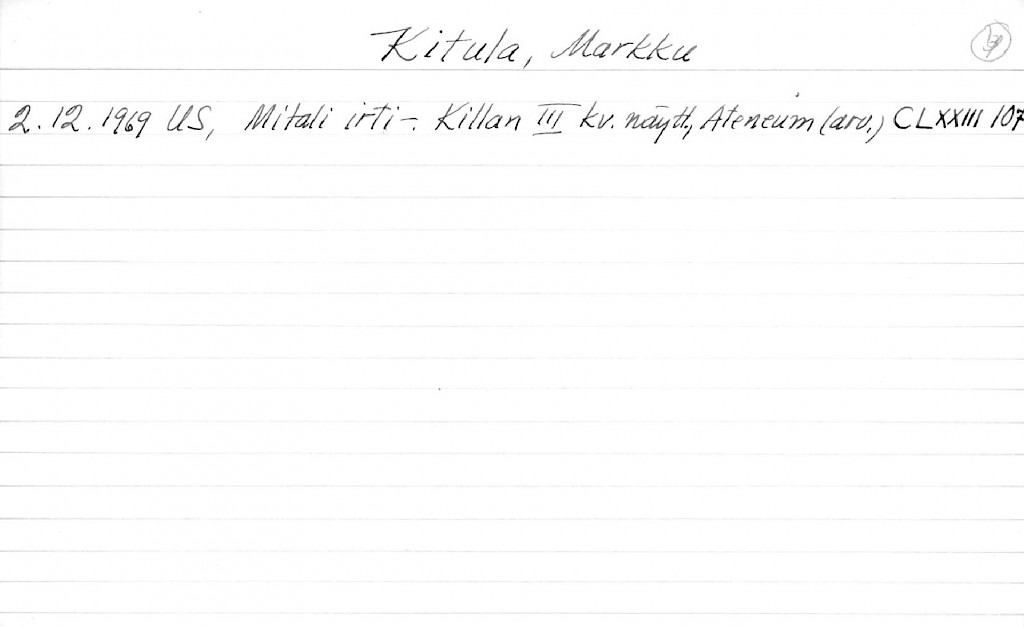 Kitula, Markku
2.12.1969 US, Mitali irti-. Killan III kv. näytt., Ateneum (arv.) CLXXIII 107